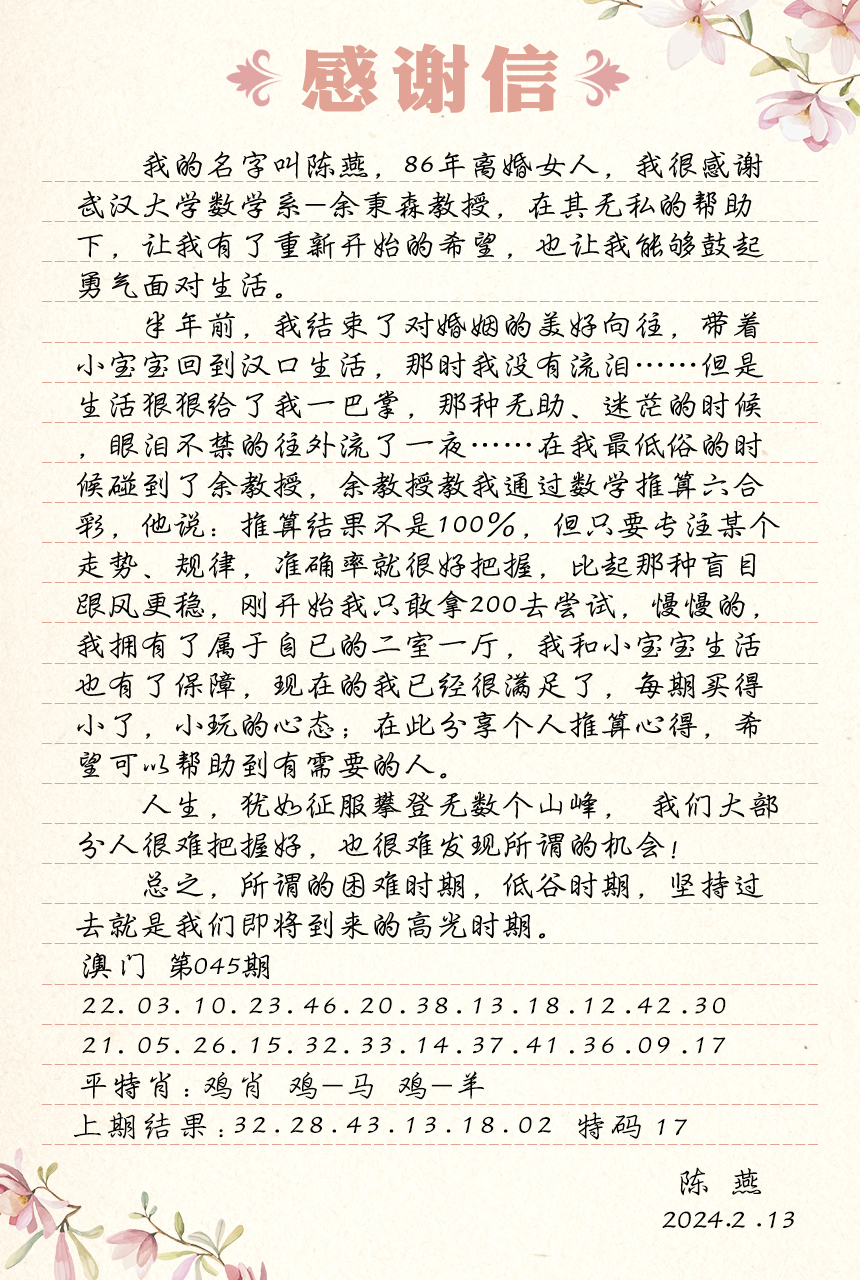 感谢信
我的名字叫陈燕，86年离婚女人，我很感谢
武汉大学数学系—余秉森教授，在其无私的帮助
下，让我有了重新开始的希望，也让我能够鼓起
勇气面对生活。
半年前，我结束了对婚姻的美好向往，带着
小宝宝回到汉口生活，那时我没有流泪……但是
生活狠狠给了我一巴掌，那种无助、迷茫的时候
，眼泪不禁的往外流了一夜……在我最低俗的时
候碰到了余教授，余教授教我通过数学推算六合
彩，他说：推算结果不是100%，但只要专注某个
走势、规律，准确率就很好把握，比起那种盲目
跟风更稳，刚开始我只敢拿200去尝试，慢慢的，
我拥有了属于自已的二室一厅，我和小宝宝生活
也有了保障，现在的我已经很满足了，每期买得
小了，小玩的心态；在此分享个人推算心得，希
望可以帮助到有需要的人。
人生，犹如征服攀登无数个山峰， 我们大部
分人很难把握好，也很难发现所谓的机会！
总之，所谓的困难时期，低谷时期，坚持过
去就是我们即将到来的高光时期。
澳门 第045期
22.03.10.23.46.20.38.13.18.12.42.30
21.05.26.15.32.33.14.37.41.36.09.17
平特肖：鸡肖 鸡—马 鸡—羊
上期结果：32.28.43.13.18.02 特码 17
陈 燕
2024.2.13